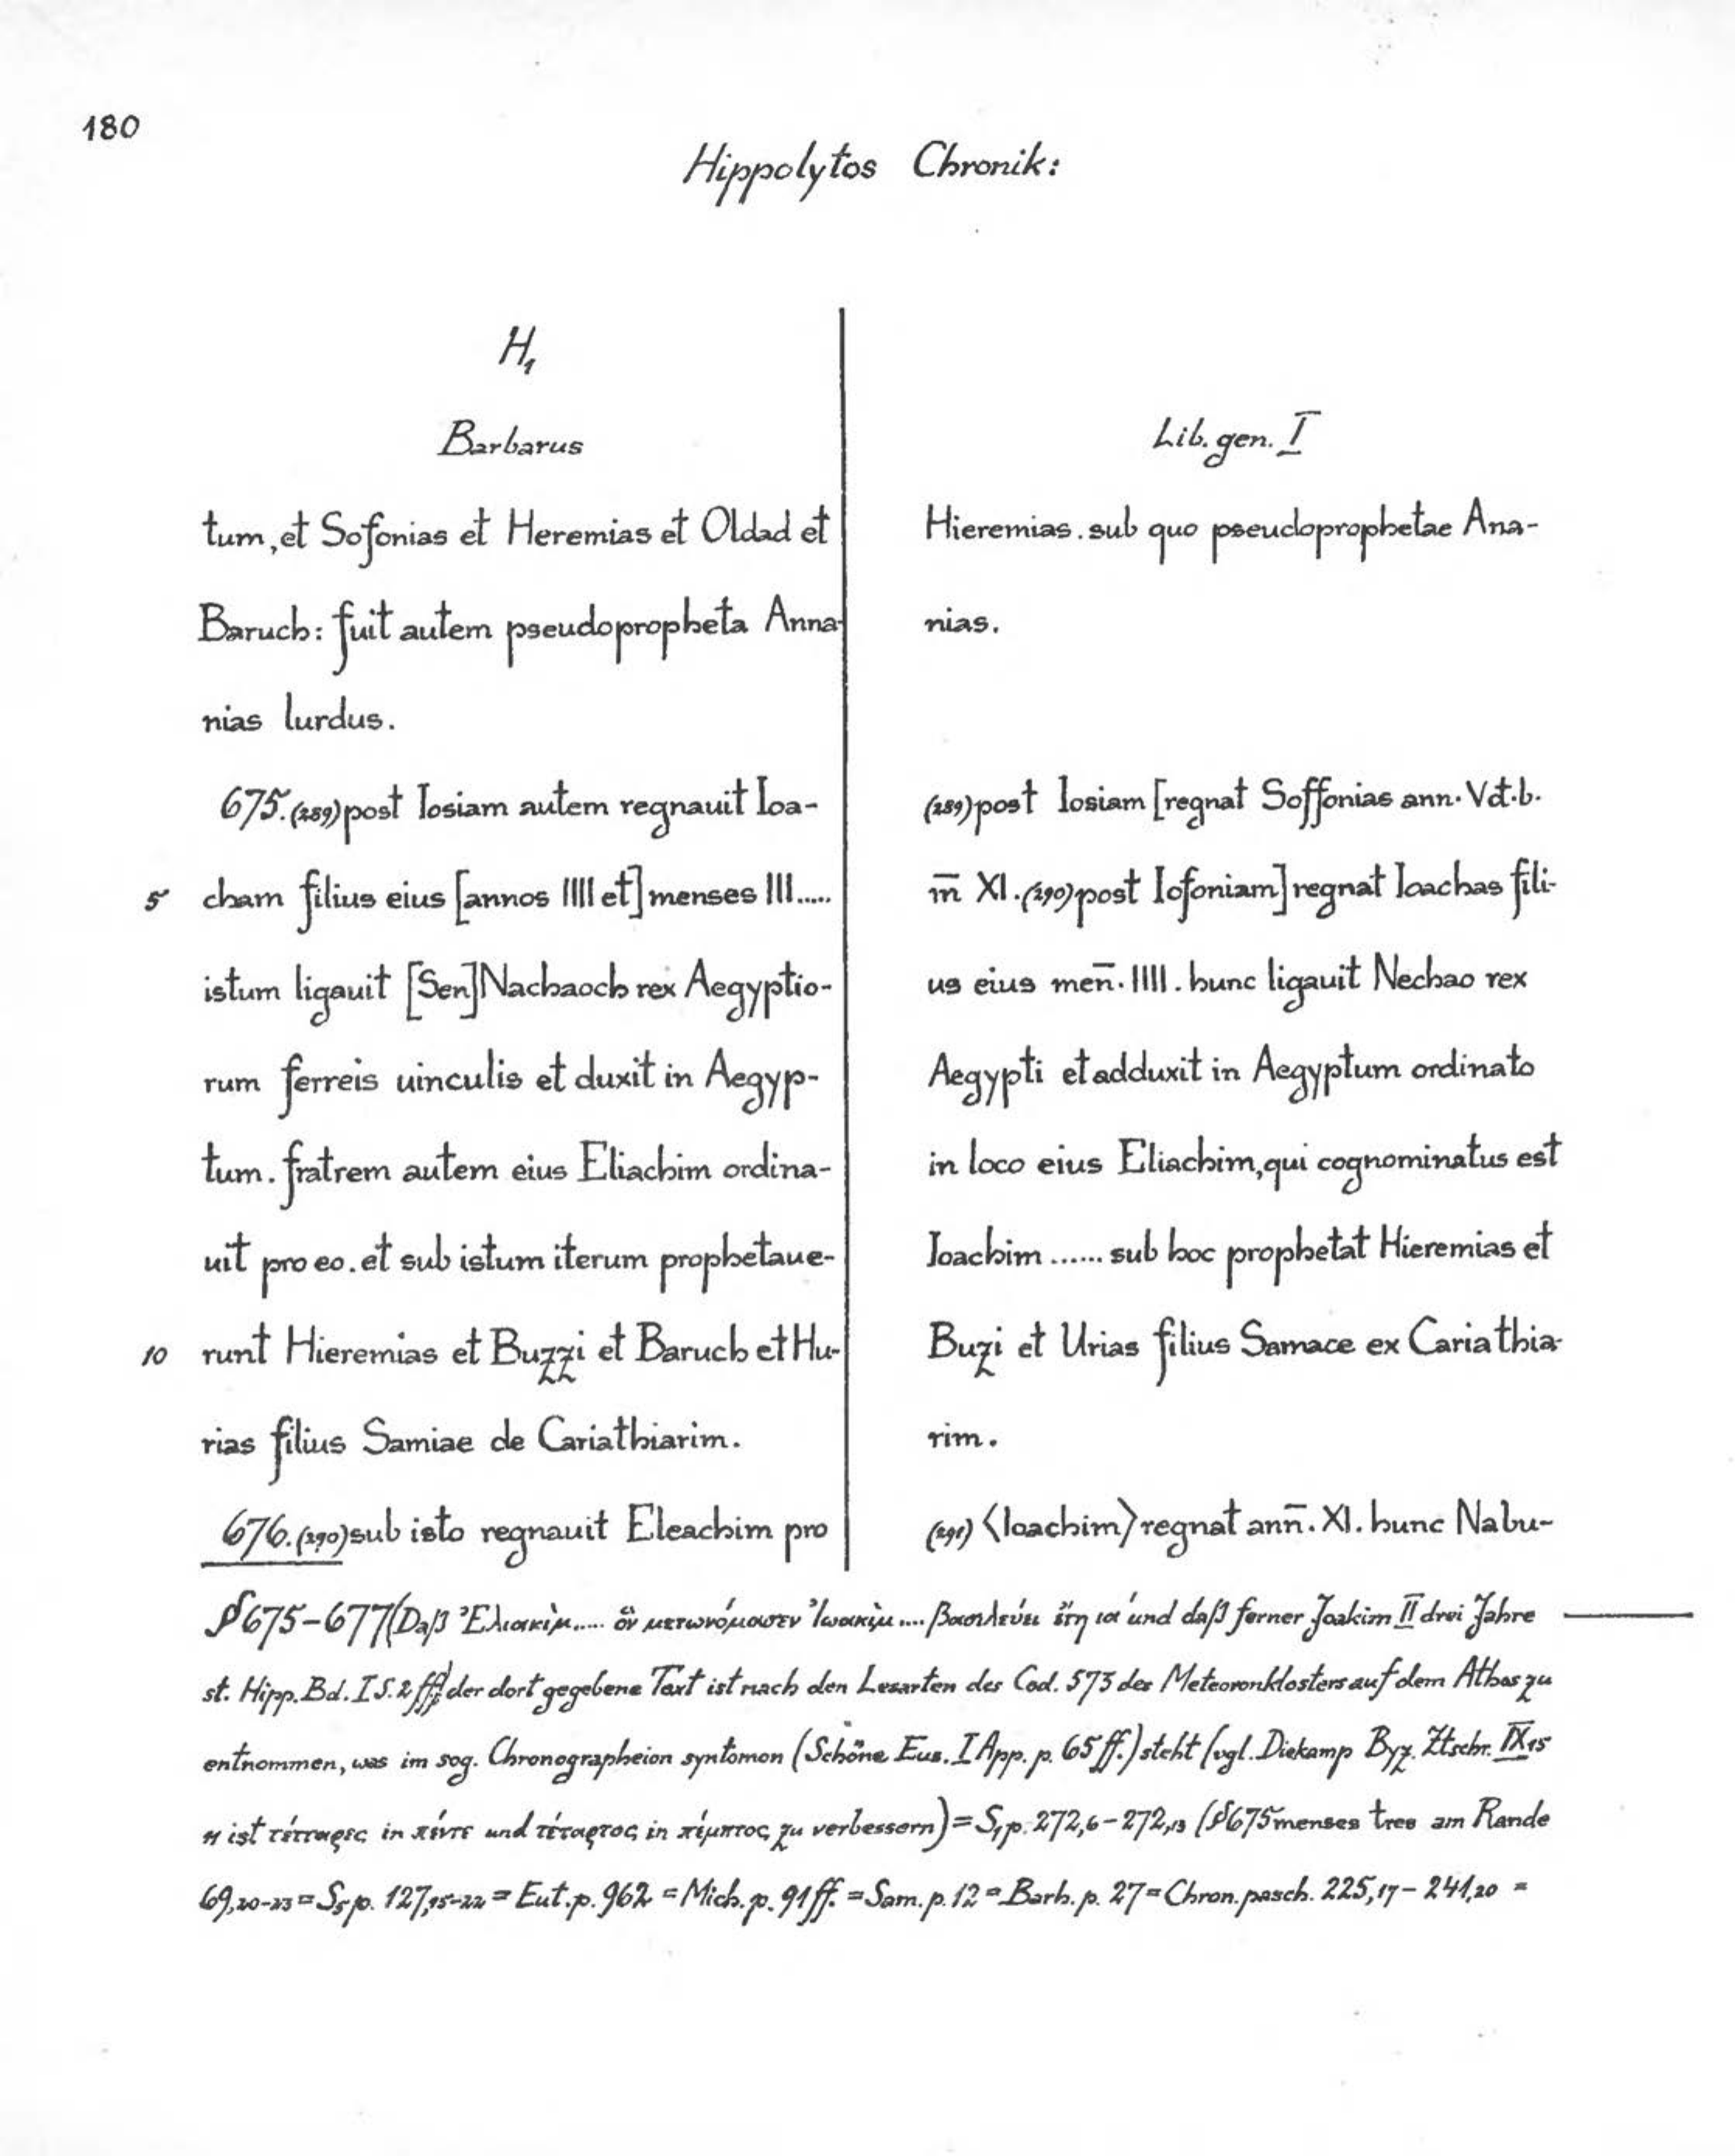 180
Hippolytos Chronik:
H₁
Barbarus
tum, et Sofonias et Heremias et Oldad et
Baruch: fuit autem pseudopropheta Anna-
nias lurdus.
675. (289) post Iosiam autem regnauit Ioa-
5 cham filius eius [annos IIII et] menses III.....
istum ligauit [Sen]Nachaoch rex Aegyptio-
rum ferreis uinculis et duxit in Aegyp-
tum. fratrem autem eius Eliachim ordina-
uit pro eo. et sub istum iterum prophetaue-
10 runt Hieremias et Buzzi et Baruch et Hu-
rias filius Samiae de Cariathiarim.
676. (290) sub isto regnauit Eleachim pro
Lib. gen. I
Hieremias. sub quo pseudoprophetae Ana-
nias.
(289) post Iosiam [regnat Soffonias ann. V d. b.
m̅ XI. (290) post Iofoniam] regnat Ioachas fili-
us eius men̅. IIII. hunc ligauit Nechao rex
Aegypti et adduxit in Aegyptum ordinato
in loco eius Eliachim, qui cognominatus est
Ioachim ...... sub hoc prophetat Hieremias et
Buzi et Urias filius Samace ex Cariathia-
rim.
(291) ⟨Ioachim⟩ regnat ann̅. XI. hunc Nabu-
§ 675-677 (Daß Ἐλιακὶμ ..... ὃν μετωνόμασεν Ἰωακὶμ .... βασιλεύει ἔτη ια' und daß ferner Joakim II drei Jahre
st. Hipp. Bd. I S. 2 ff.) der dort gegebene Text ist nach den Lesarten des Cod. 573 des Meteoronklosters auf dem Athos zu
entnommen, was im sog. Chronographeion syntomon (Schöne Eus. I App. p. 65 ff.) steht (vgl. Diekamp Byz. Ztschr. IX 15
ist τέτταρες in πέντε und τέταρτος in πέμπτος zu verbessern) = S₁ p. 272,6-272,13 (§ 675 menses tres am Rande
69,20-23 = S₅ p. 127,15-22 = Eut. p. 962 = Mich. p. 91 ff. = Sam. p. 12 = Barh. p. 27 = Chron. pasch. 225,17 - 241,20 =